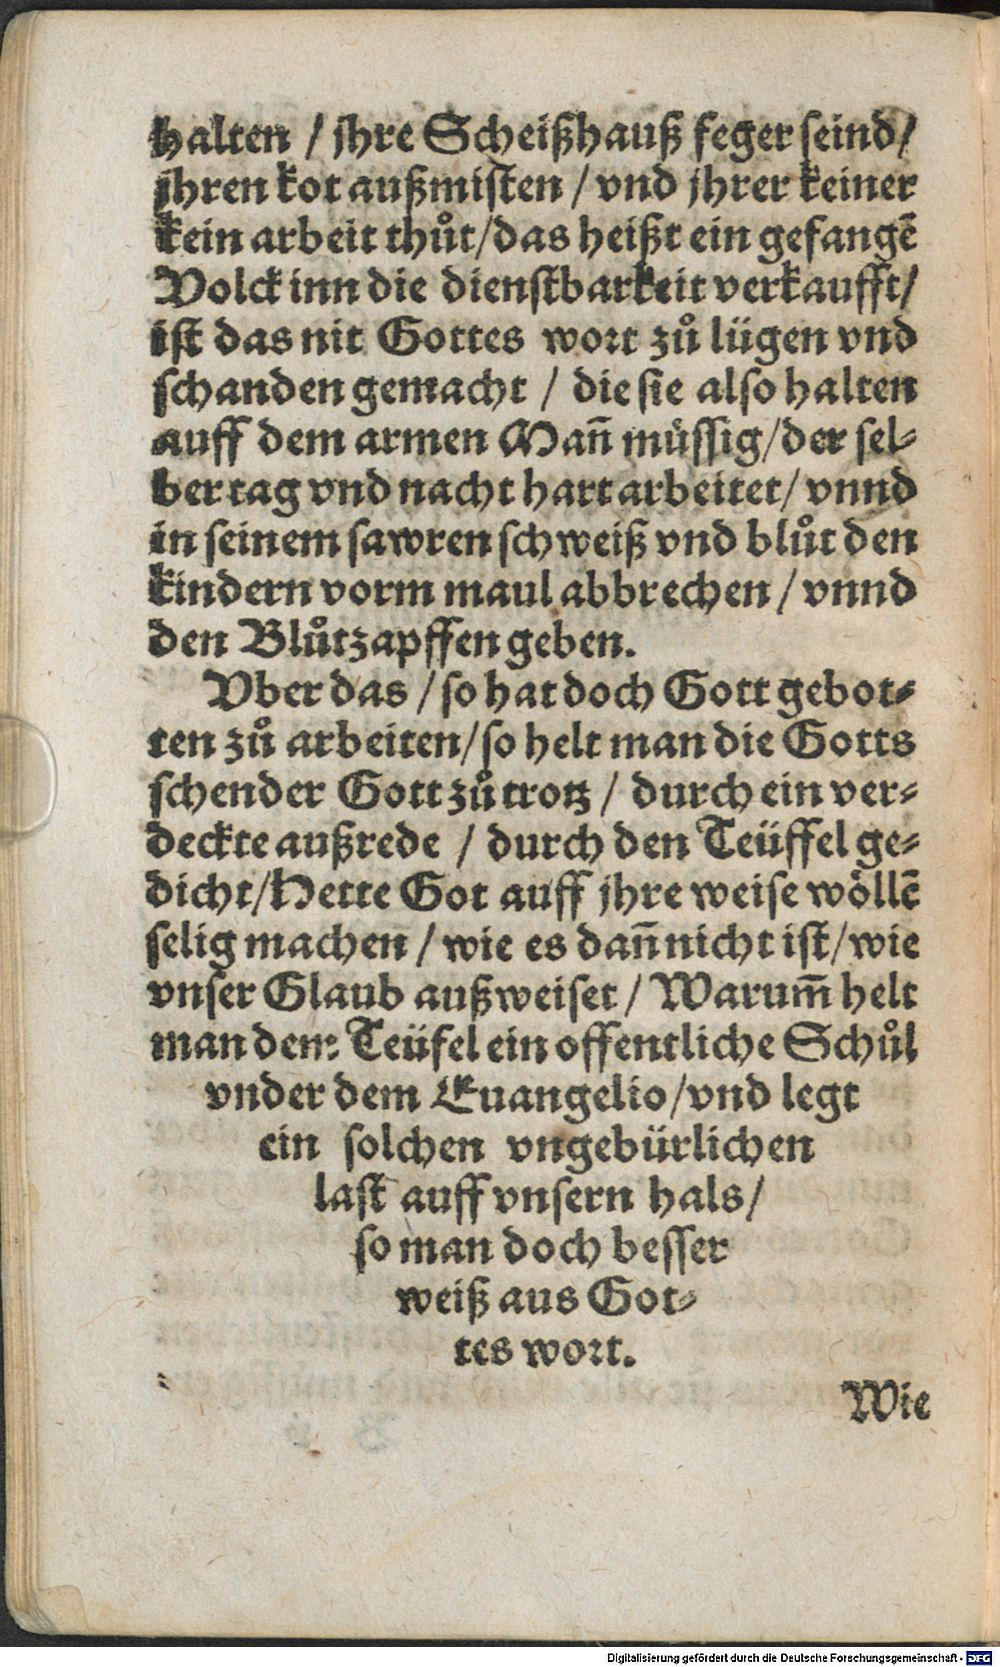 halten / jhre Scheißhauß feger seind/
jhren kot außmisten / vnd jhrer keiner
kein arbeit thůt/das heißt ein gefangē
Volck inn die dienstbarkeit verkaufft/
ist das nit Gottes wort zů lügen vnd
schanden gemacht / die sie also halten
auff dem armen Man̄ müssig/der sel-
ber tag vnd nacht hart arbeitet/ vnnd
in seinem sawren schweiß vnd blůt den
kindern vorm maul abbrechen / vnnd
den Blůtzapffen geben.
Vber das / so hat doch Gott gebot-
ten zů arbeiten/so helt man die Gotts
schender Gott zů trotz / durch ein ver-
deckte außrede / durch den Teüffel ge-
dicht/Hette Got auff jhre weise wöllē
selig machen / wie es dan̄ nicht ist/wie
vnser Glaub außweiset / Warum̄ helt
man dem Teüfel ein offentliche Schůl
vnder dem Euangelio/vnd legt
ein solchen vngebürlichen
last auff vnsern hals/
so man doch besser
weiß aus Got-
tes wort.
Wie
Digitalisierung gefördert durch die Deutsche Forschungsgemeinschaft - DFG